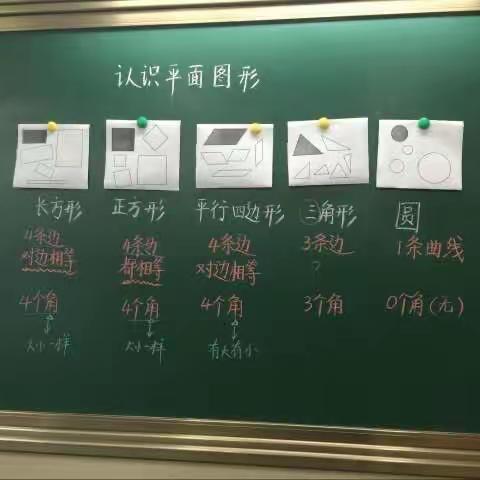 认识平面图形
长方形 正方形 平行四边形 三角形 圆
4条边 4条边 4条边 3条边 1条曲线
对边相等 都相等 对边相等 ?
4个角 4个角 4个角 3个角 0个角(无)
大小一样 大小一样 有大有小